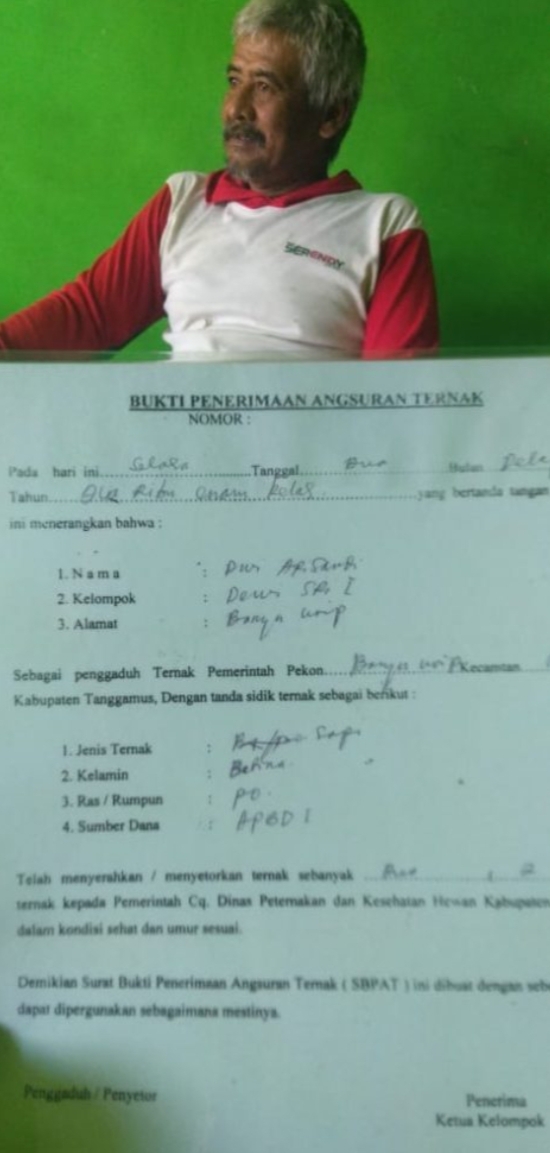 SERENDY
BUKTI PENERIMAAN ANGSURAN TERNAK
NOMOR :
Pada hari ini Selasa Tanggal Dua Bulan
Tahun Dua Ribu enam belas yang bertanda tangan
ini menerangkan bahwa :
1. Nama :
2. Kelompok : Dewi Sri I
3. Alamat : Banyu urip
Sebagai penggaduh Ternak Pemerintah Pekon Banyu urip Kecamtan
Kabupaten Tanggamus, Dengan tanda sidik ternak sebagai berikut :
1. Jenis Ternak : Sapi
2. Kelamin : Betina
3. Ras / Rumpun : PO
4. Sumber Dana : APBD I
Telah menyerahkan / menyetorkan ternak sebanyak Dua , 2
ternak kepada Pemerintah Cq. Dinas Peternakan dan Kesehatan Hewan Kabupaten
dalam kondisi sehat dan umur sesuai.
Demikian Surat Bukti Penerimaan Angsuran Ternak ( SBPAT ) ini dibuat dengan
dapat dipergunakan sebagaimana mestinya.
Penggaduh / Penyetor
Penerima
Ketua Kelompok